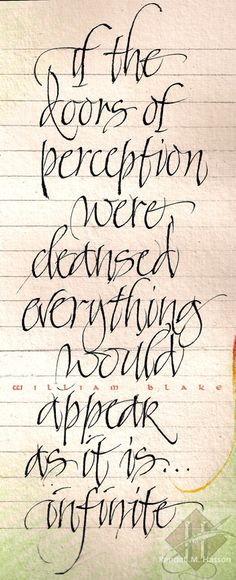 if the
doors of
perception
were
cleansed
everything
would
WILLIAM BLAKE
appear
as it is...
infinite
Randall M. Hasson